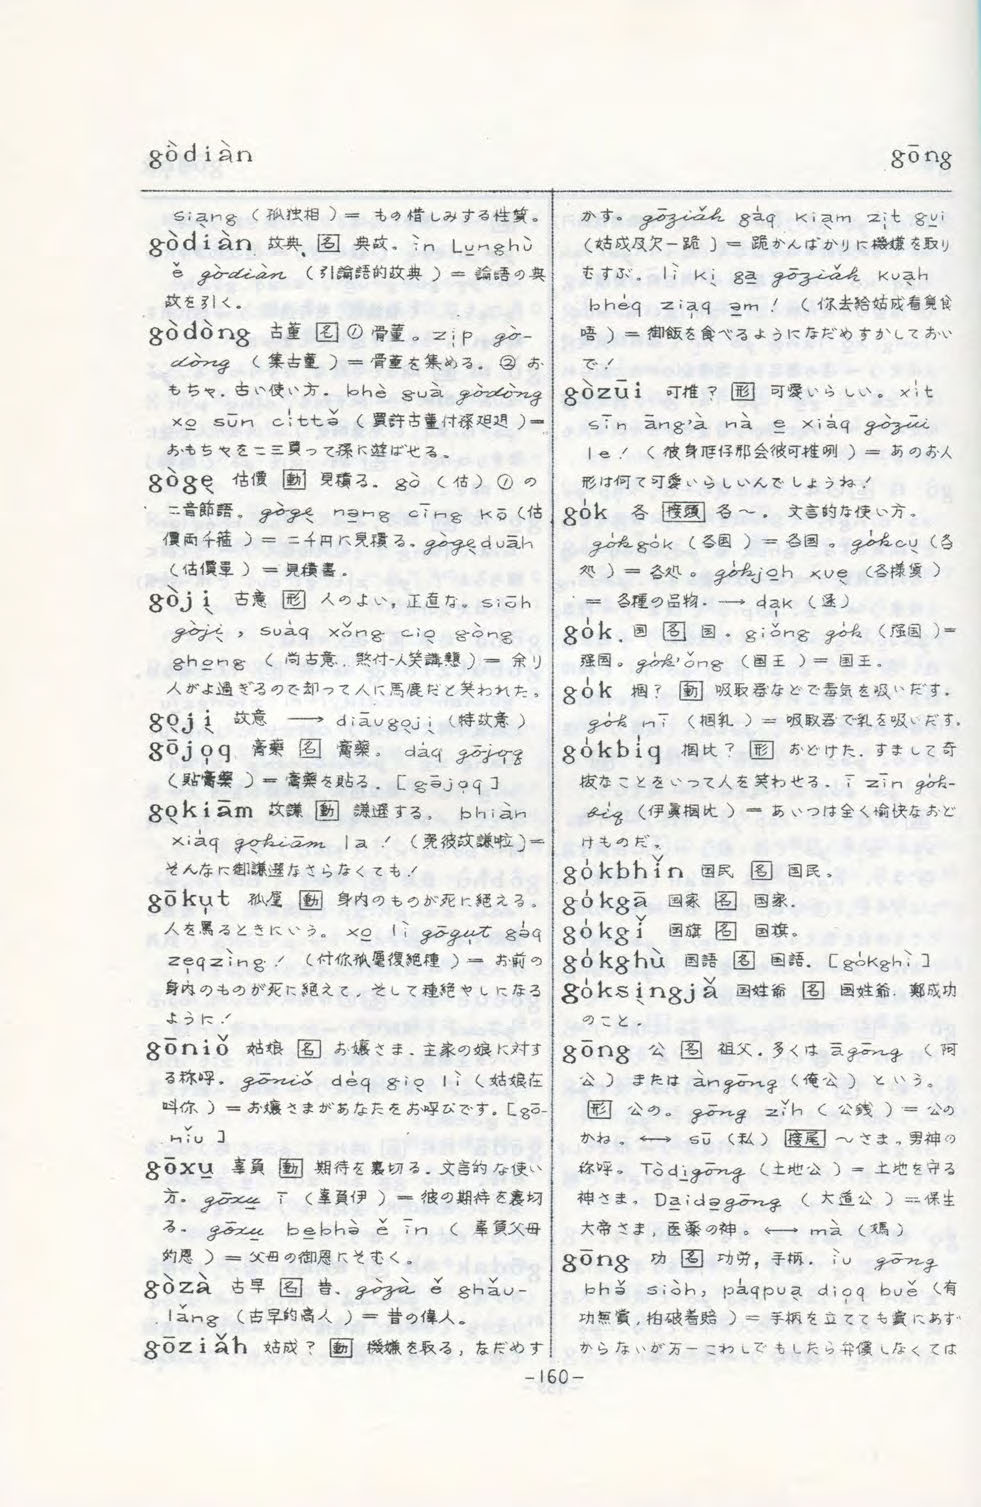 gòdiàn
gōng
siạng (孤独相) = もの惜しみする性質。
gòdiàn 故典 [名] 典故。in Lụnghù
ě gòdiàn (引論語的故典) = 論語の典
故を引く。
gòdòng 古董 [名] ① 骨董。zịp gò-
dòng (集古董) = 骨董を集める。② お
もちゃ。古い使い方。bhè guà gòdòng
xọ sūn
(買許古董付孫𨑨迌) =
おもちゃを二三買って孫に遊ばせる。
gògẹ 估價 [動] 見積る。gò (估) ① の
二音節語。gògẹ nạng cīng kō (估
價両千箍) = 二千円に見積る。gògẹduāh
(估價單) = 見積書。
gòjị 古意 [形] 人のよい, 正直な。siōh
gòjị, suȧq xǒng ciọ gòng
ghọng (尚古意, 煞付人笑講戇) = 余り
人がよ過ぎるので却って人に馬鹿だと笑われた。
gọjị 故意 ⟶ diāugọjị (特故意)
gōjọq 膏藥 [名] 膏藥。dȧq gōjọq
(貼膏藥) = 膏藥を貼る。[gōjọq]
gọkiām 故謙 [動] 謙遜する。bhiàn
xiȧq gọkiām la! (免彼故謙啦) =
そんなに御謙遜なさらなくても!
gōkụt 孤屈 [動] 身内のものが死に絶える。
人を罵るときにいう。xọ lì gōgụt gȧq
zẹqzìng! (付你孤屈復絕種) = お前の
身内のものが死に絶えて, そして種絶やしになる
ように!
gōniǒ 姑娘 [名] お嬢さま。主家の娘に対す
る称呼。gōniǒ dėq giọ lì (姑娘在
叫你) = お嬢さまがあなたをお呼びです。[gō-
nǐu]
gōxụ 辜負 [動] 期待を裏切る。文言的な使い
方。gōxụ ī (辜負伊) = 彼の期待を裏切
る。gōxụ bẹbhà ě īn (辜負父母
的恩) = 父母の御恩にそむく
gòzà 古早 [名] 昔。gòzà ě ghǎu-
lǎng (古早的高人) = 昔の偉人。
gōziǎh 姑成? [動] 機嫌を取る, なだめす
かす。gōziǎh gȧq kiạm zịt gụi
(姑成及欠一跪) = 跪かんばかりに機嫌を取り
むすぶ。lì kị gạ gōziǎh kuạh
bhėq ziạq ạm! (你去給姑成看覓食
唔) = 御飯を食べるようになだめすかしておい
で!
gòzūi 可椎? [形] 可愛いらしい。xịt
sīn āng'à nà ẹ xiȧq gòzūi
le! (彼身尪仔那会彼可椎咧) = あのお人
形は何て可愛いらしいんでしょうね!
gȯk 各 [接頭] 各〜。文言的な使い方。
gȯkgȯk (各国) = 各国。gȯkcụ (各
処) = 各処。gȯkjọh xuẹ (各様貨)
= 各種の品物。⟶ dạk (逐)
gȯk 国 [名] 国。giǒng gȯk (强国) =
强国。gȯk'ǒng (国王) = 国王。
gȯk 摑? [動] 吸取器などで毒気を吸いだす。
gȯk nī (摑乳) = 吸取器で乳を吸いだす。
gȯkbịq 摑比? [形] おどけた。すまして奇
抜なことをいって人を笑わせる。ī zīn gȯk-
bịq (伊眞摑比) = あいつは全く愉快なおど
けものだ。
gȯkbhǐn 国民 [名] 国民。
gȯkgā 国家 [名] 国家。
gȯkgǐ 国旗 [名] 国旗。
gȯkghù 国語 [名] 国語。[gȯkghì]
gȯksịngjǎ 国姓爺 [名] 国姓爺。鄭成功
のこと。
gōng 公 [名] 祖父。多くは āgōng (阿
公) または àngōng (俺公) という。
[形] 公の。gōng zǐh (公銭) = 公の
かね。⟷ sū (私) [接尾] 〜さま。男神の
称呼。Tòdịgōng (土地公) = 土地を守る
神さま。Dạidọgōng (大道公) = 保生
大帝さま, 医薬の神。⟷ mà (媽)
gōng 功 [名] 功労, 手柄。ìu gōng
bhǒ siòh, pȧqpuạ diọq buě (有
功無賞, 拍破着賠) = 手柄を立てても賞にあず
からないが万一こわしでもしたら弁償しなくては
-160-